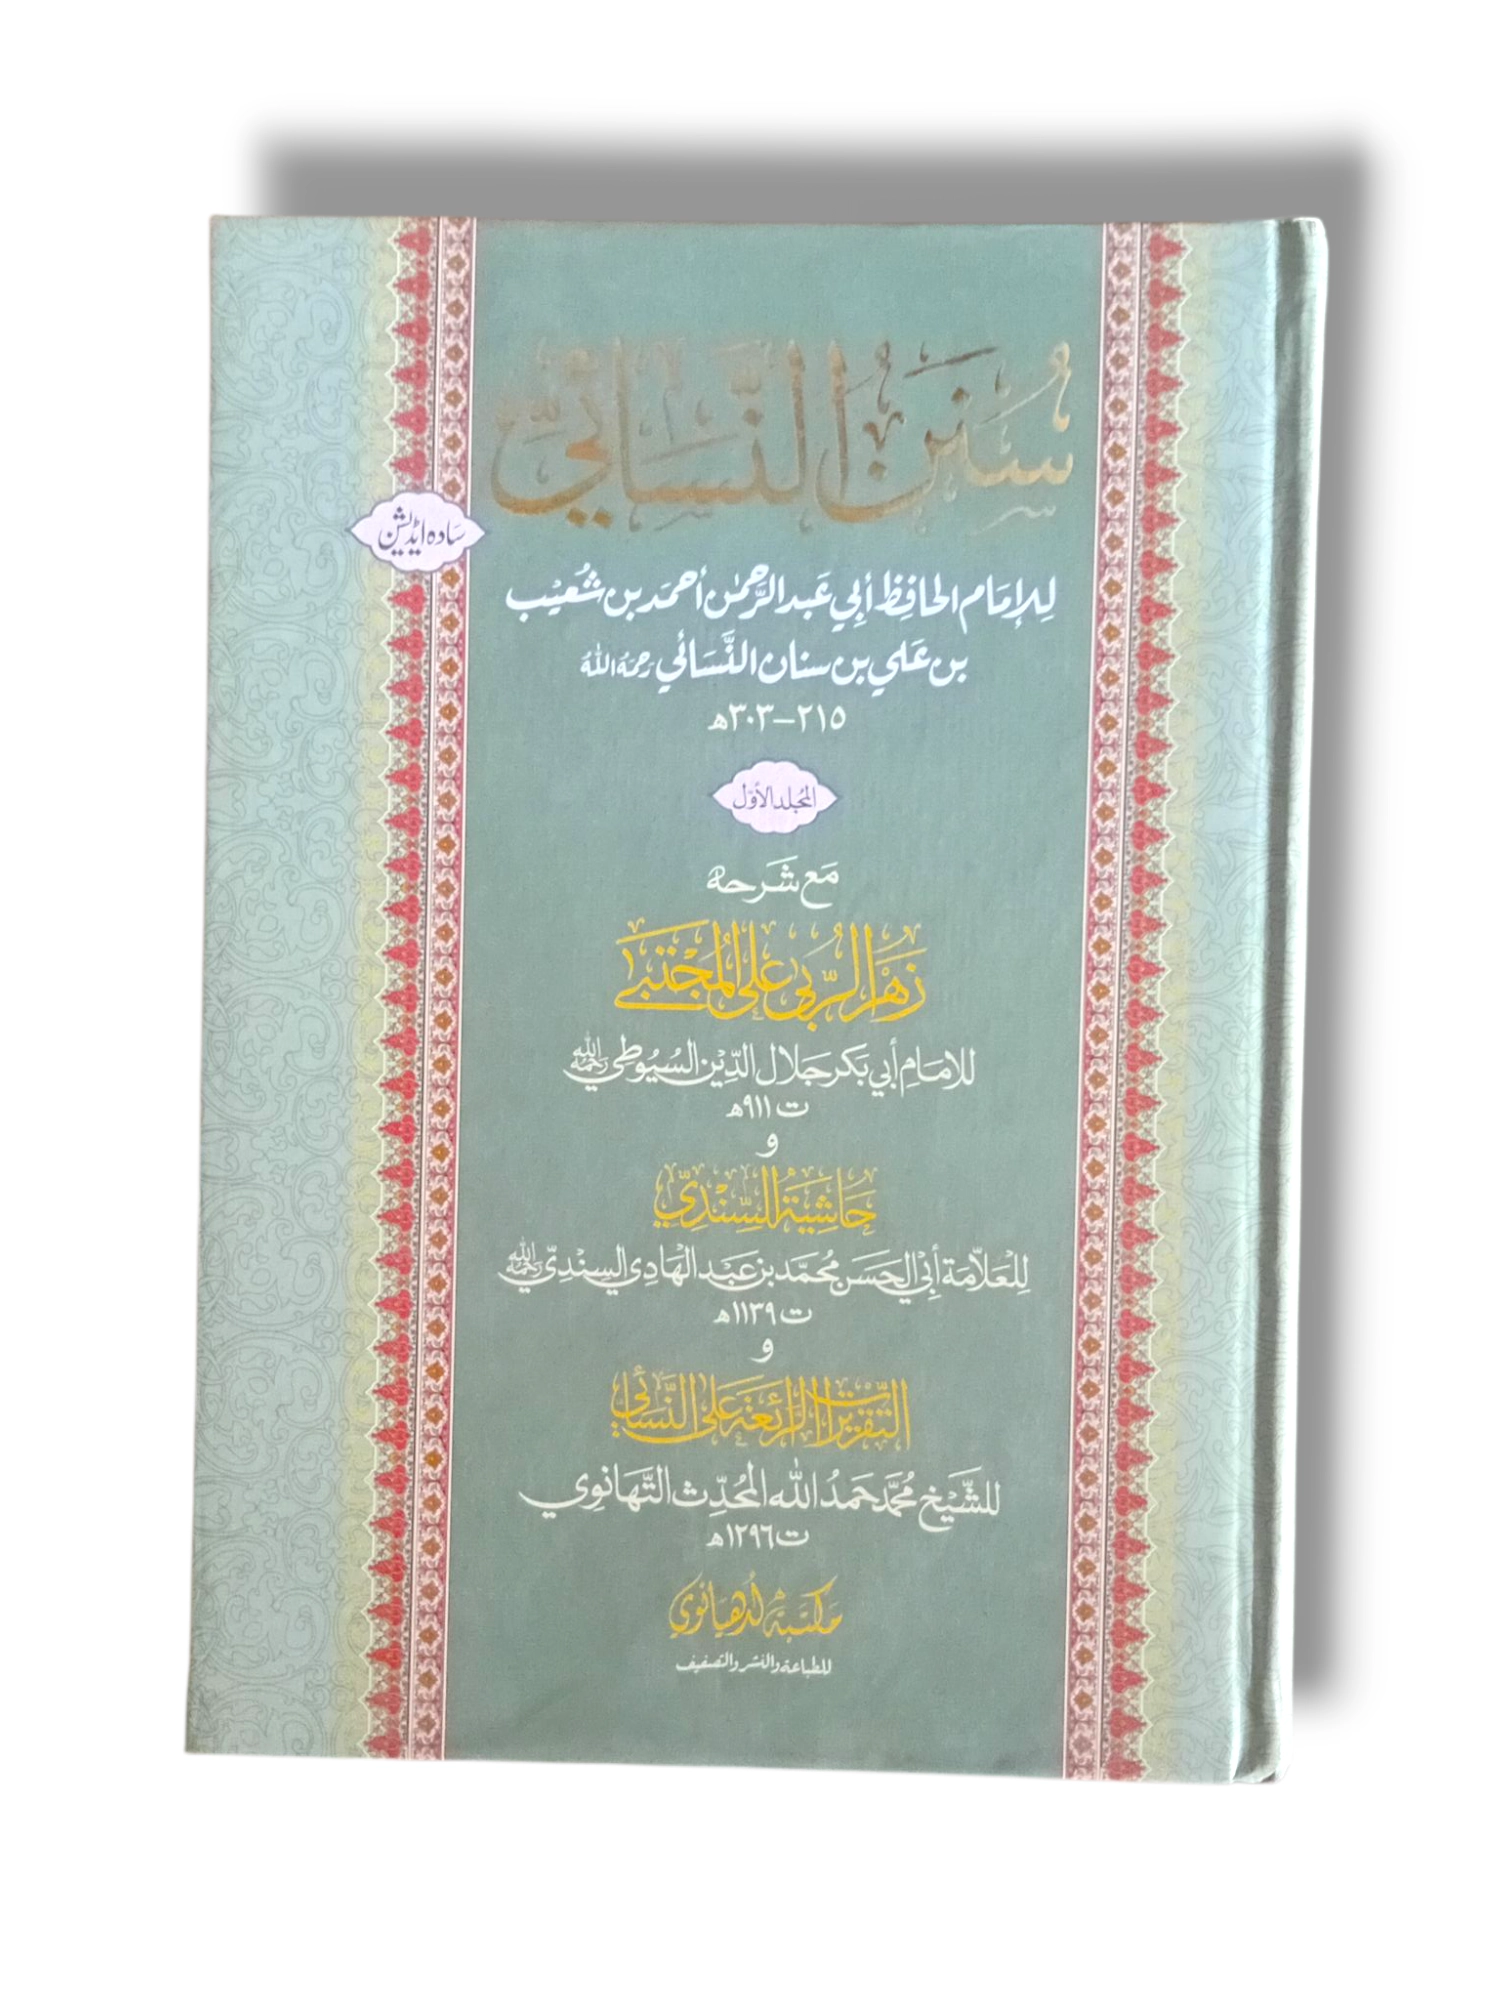 سُنَنُ النَّسَائِيِّ
سَادہ ایڈیشن
لِلإِمَامِ الحَافِظِ أَبِي عَبدِ الرَّحمٰن أحمَد بن شُعَيْب
بن عَلي بن سنان النَّسَائي رَحِمَهُ الله
٢١٥–٣٠٣ھ
المُجلد الأوّل
مَع شَرحه
زَهْرُ الرُّبىٰ عَلَى المُجْتَبىٰ
للإمَامِ أبي بَكر جَلال الدِّيْن السُّيُوطي رَحِمَهُ الله
ت ٩١١ھ
و
حَاشِيَةُ السِّنْدِيِّ
لِلْعَلاَّمَة أَبِي الحَسَن مُحَمَّد بن عَبْد الهَادِي السِنْدِيّ رَحِمَهُ الله
ت ١١٣٩ھ
و
التَّقْرِيْرَاتُ الرَّائِعَة عَلَى النَّسَائِي
للشَّيْخ مُحمَّد حَمدُ الله المُحدِّث التَّهَانوِي
ت ١٢٩٦ھ
مَكتَبَة لُدهيَانوِي
للطباعة والنشر والتصنيف